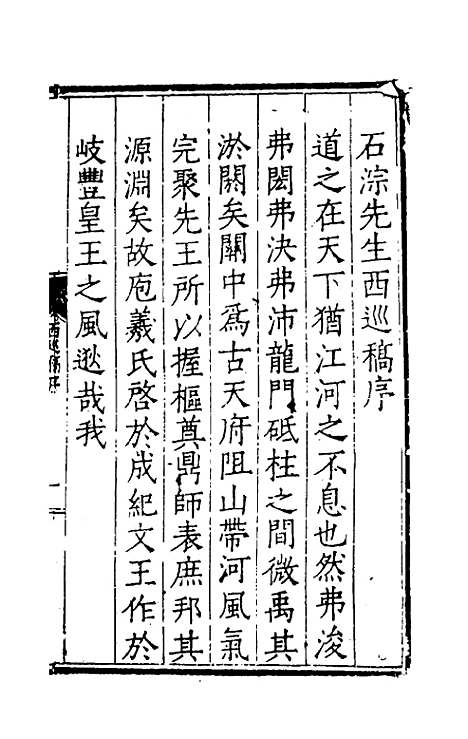 石淙先生西巡稿序
道之在天下猶江河之不息也然弗浚
弗閎弗決弗沛龍門砥柱之間微禹其
淤閼矣關中爲古天府阻山帶河風氣
完聚先王所以握樞奠鼎師表庶邦其
源淵矣故庖羲氏啓於成紀文王作於
岐豐皇王之風逖哉我
西巡稿序
一